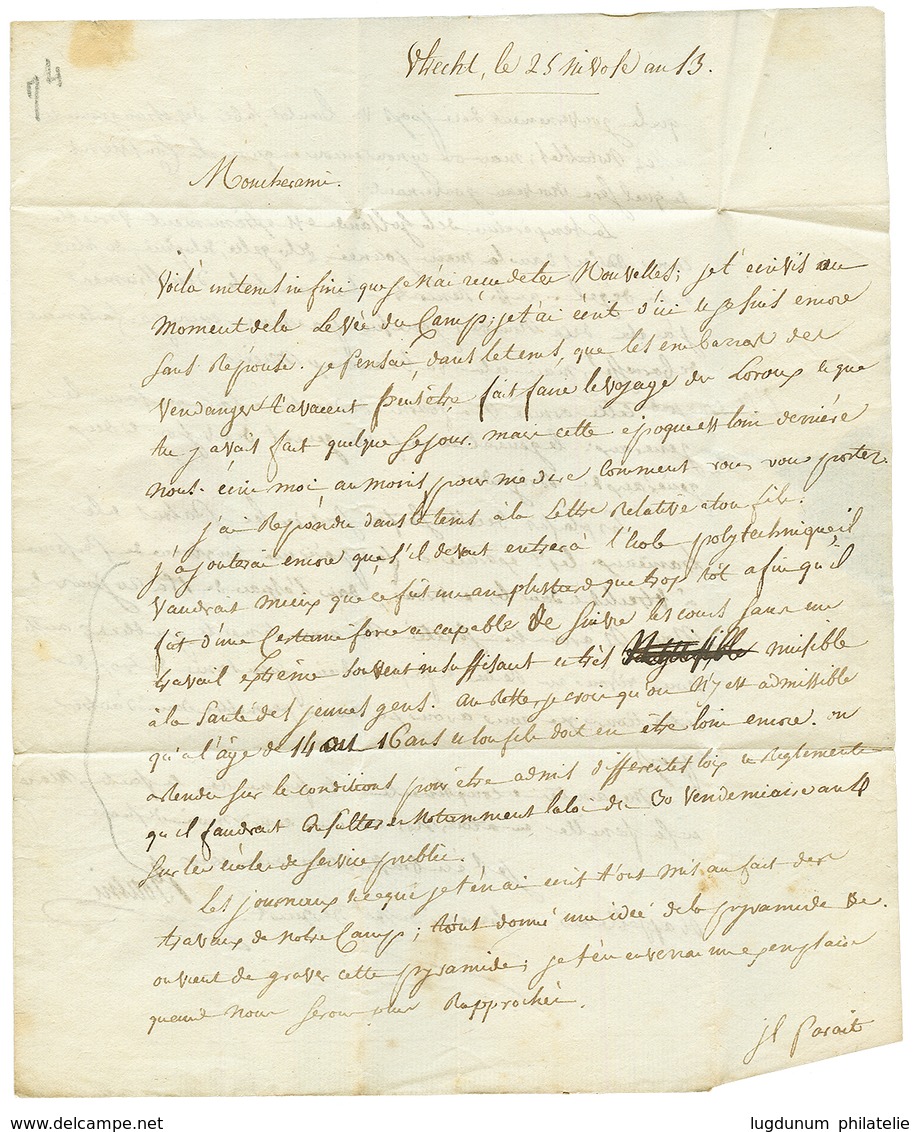 74
Utrecht, le 25 nivose an 13.
Mon cher ami.
Voilà un tems infini que je n'ai recu de tes Nouvelles; je t'ecrivis au
Moment de la Levée du Camp; je t'ai écrit d'ici et je suis encore
sans Réponse. je pensai, dans le tems, que les embarras des
vendanges t'avaient peut être fait faire le voyage du Loroux et que
tu y avais fait quelque séjour. mais cette époque est loin derriére
nous. écris moi au moins pour me dire comment vous vous portez.
j'ai Repondu dans le tems à la Lettre Relative a ton fils.
j'ajouterai encore que s'il devait entrer à l'école polytechnique, il
vaudrait mieux que ce fût un an plus tard que trop tôt afin qu'il
fût d'une certaine force et capable de suivre les cours sans un
travail extrême souvent insuffisant et très nuisible
à la santé des jeunes gens. au reste je crois qu'on n'y est admissible
qu'a l'âge de 14 ou 16 ans et ton fils doit en être loin encore. on
a rendu sur les conditions pour être admis differentes loix et Reglements
qu'il faudrait Consulter et Notamment la loi du 30 vendemiaire an 4
sur les écoles de service public.
les journaux et ce que je t'en ai ecrit t'ont mis au fait des
travaux de notre Camp; t'ont donné une idée de la pyramide &c.
on vient de graver cette pyramide; je t'en enverrai un exemplaire
quand nous serons plus Rapprochés.
il parait
www.delcampe.net
lugdunum philatelie